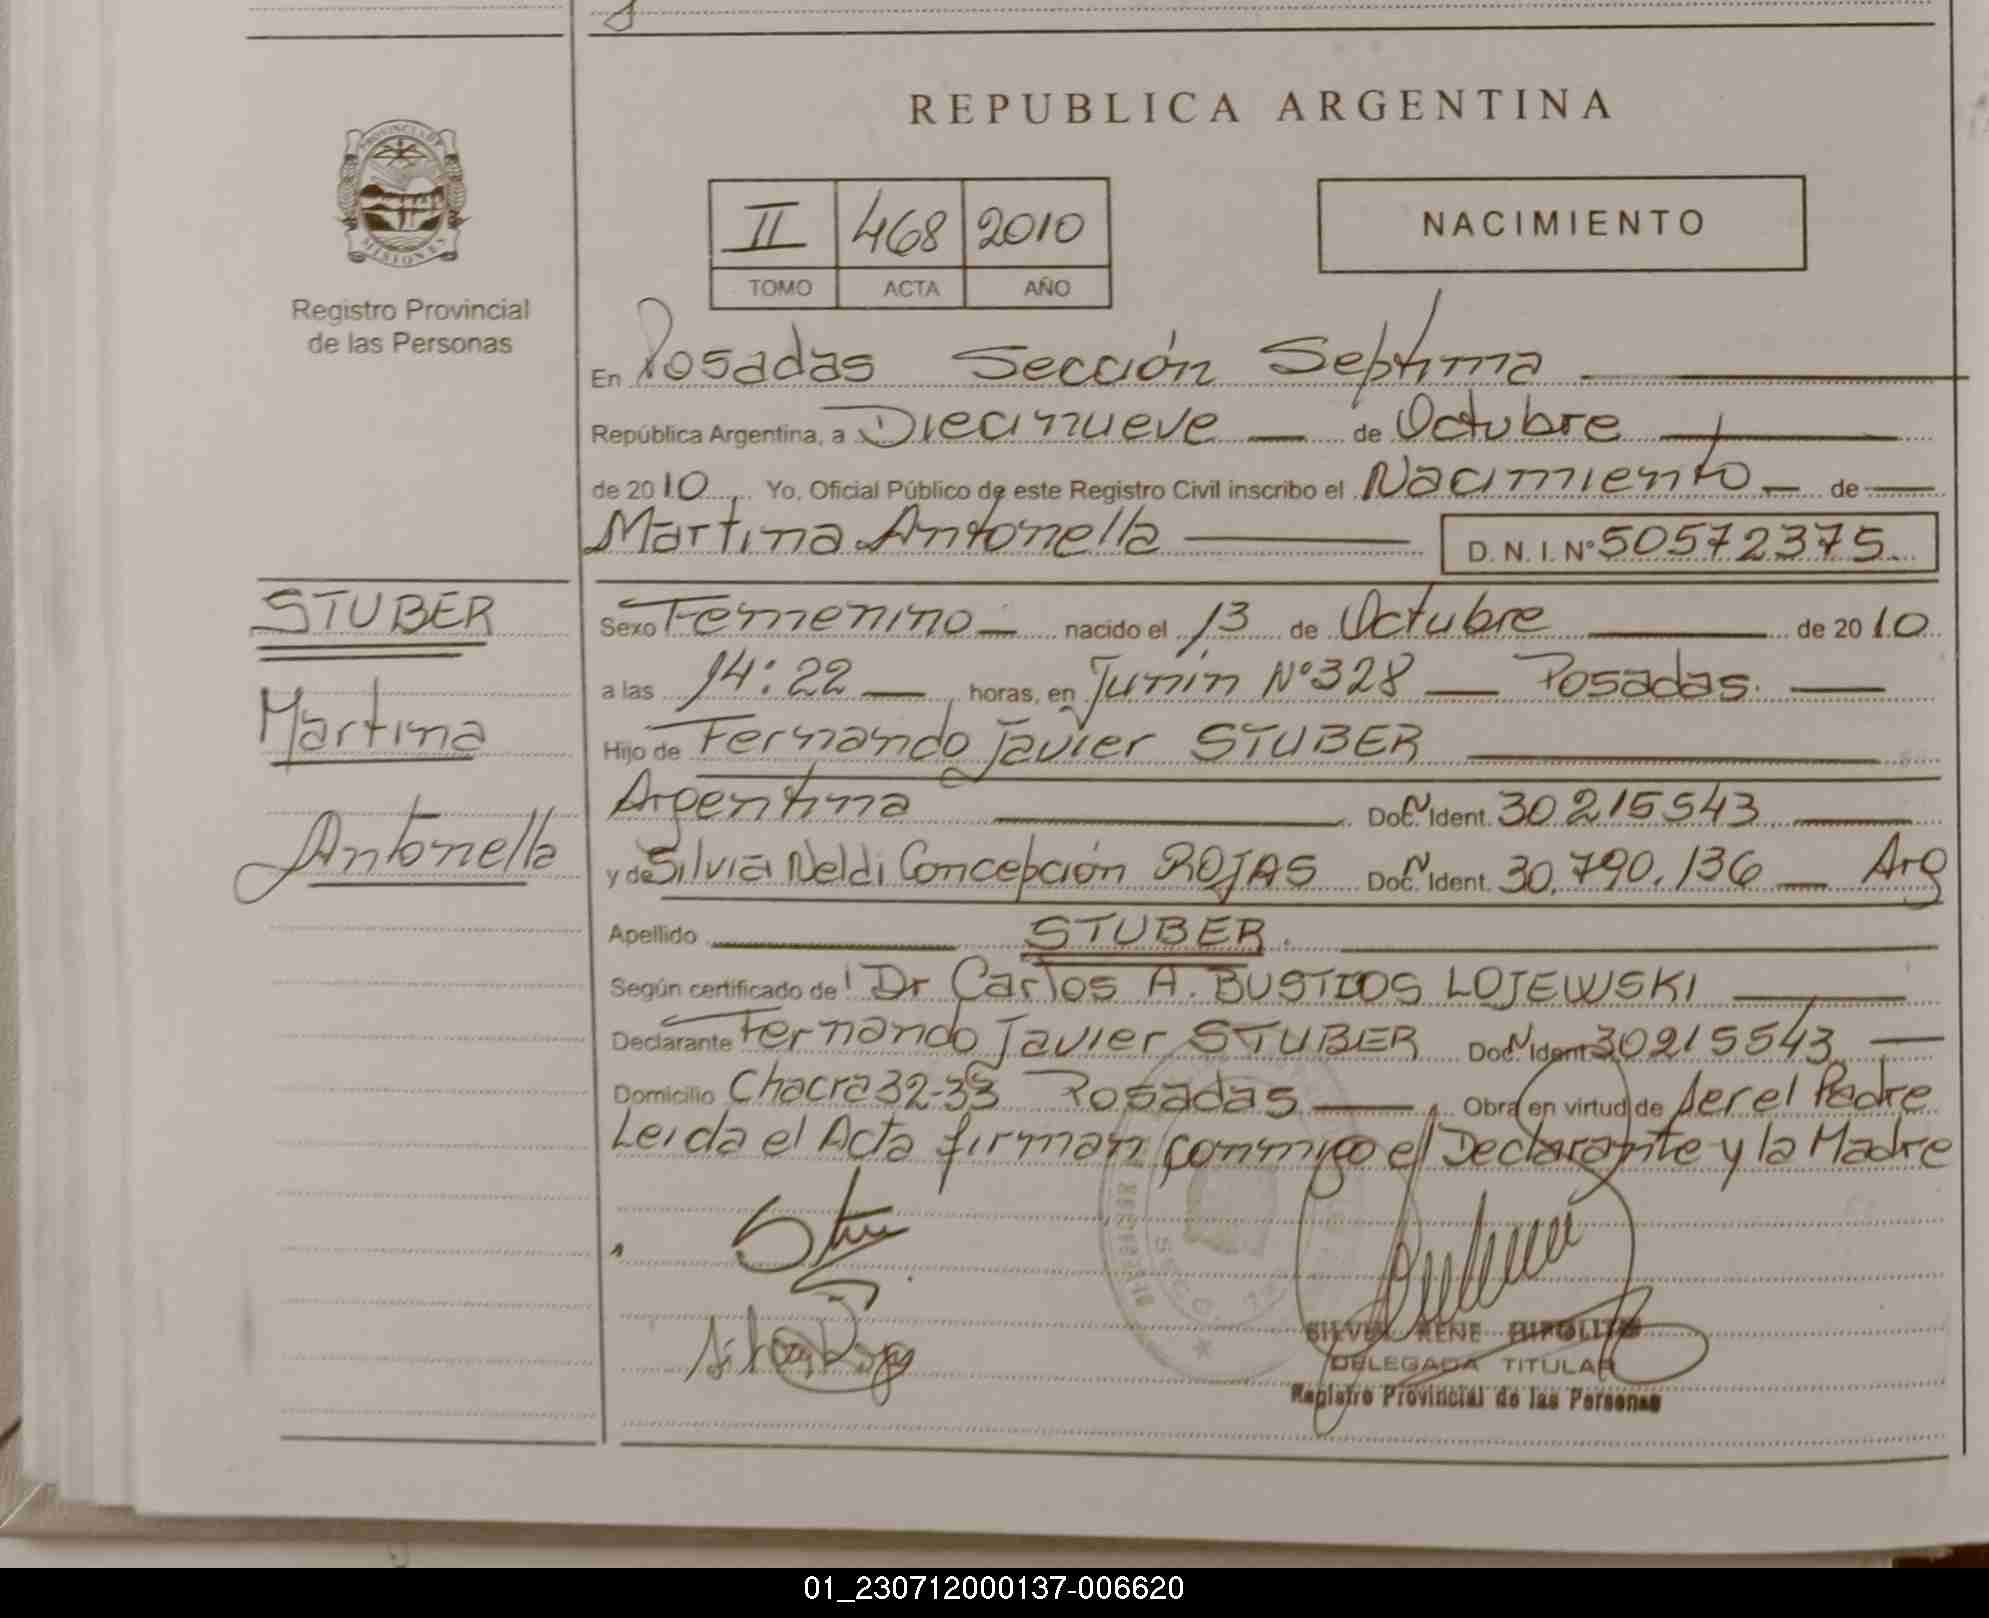 REPUBLICA ARGENTINA
PROVINCIA DE
MISIONES
Registro Provincial
de las Personas
II 468 2010
TOMO ACTA AÑO
NACIMIENTO
En Posadas Sección Septima
República Argentina, a Diecinueve de Octubre
de 2010, Yo, Oficial Público de este Registro Civil inscribo el Nacimiento de
Martina Antonella D. N. I. Nº 50572375
STUBER
Martina
Antonella
Sexo Femenino nacido el 13 de Octubre de 2010
a las 14:22 horas, en Junin Nº 328 Posadas.
Hijo de Fernando Javier STUBER
Argentina Doc. Ident. 30215543
y de Silvia Neldi Concepción ROJAS Doc. Ident. 30.790.136 Arg
Apellido STUBER.
Según certificado de Dr Carlos A. BUSTIOS LOJEWSKI
Declarante Fernando Javier STUBER Doc. Ident. 30215543
Domicilio Chacra 32-33 Posadas Obra en virtud de ser el Padre
Leida el Acta firman conmigo el Declarante y la Madre
DELEGADA TITULAR
Registro Provincial de las Personas
01_230712000137-006620